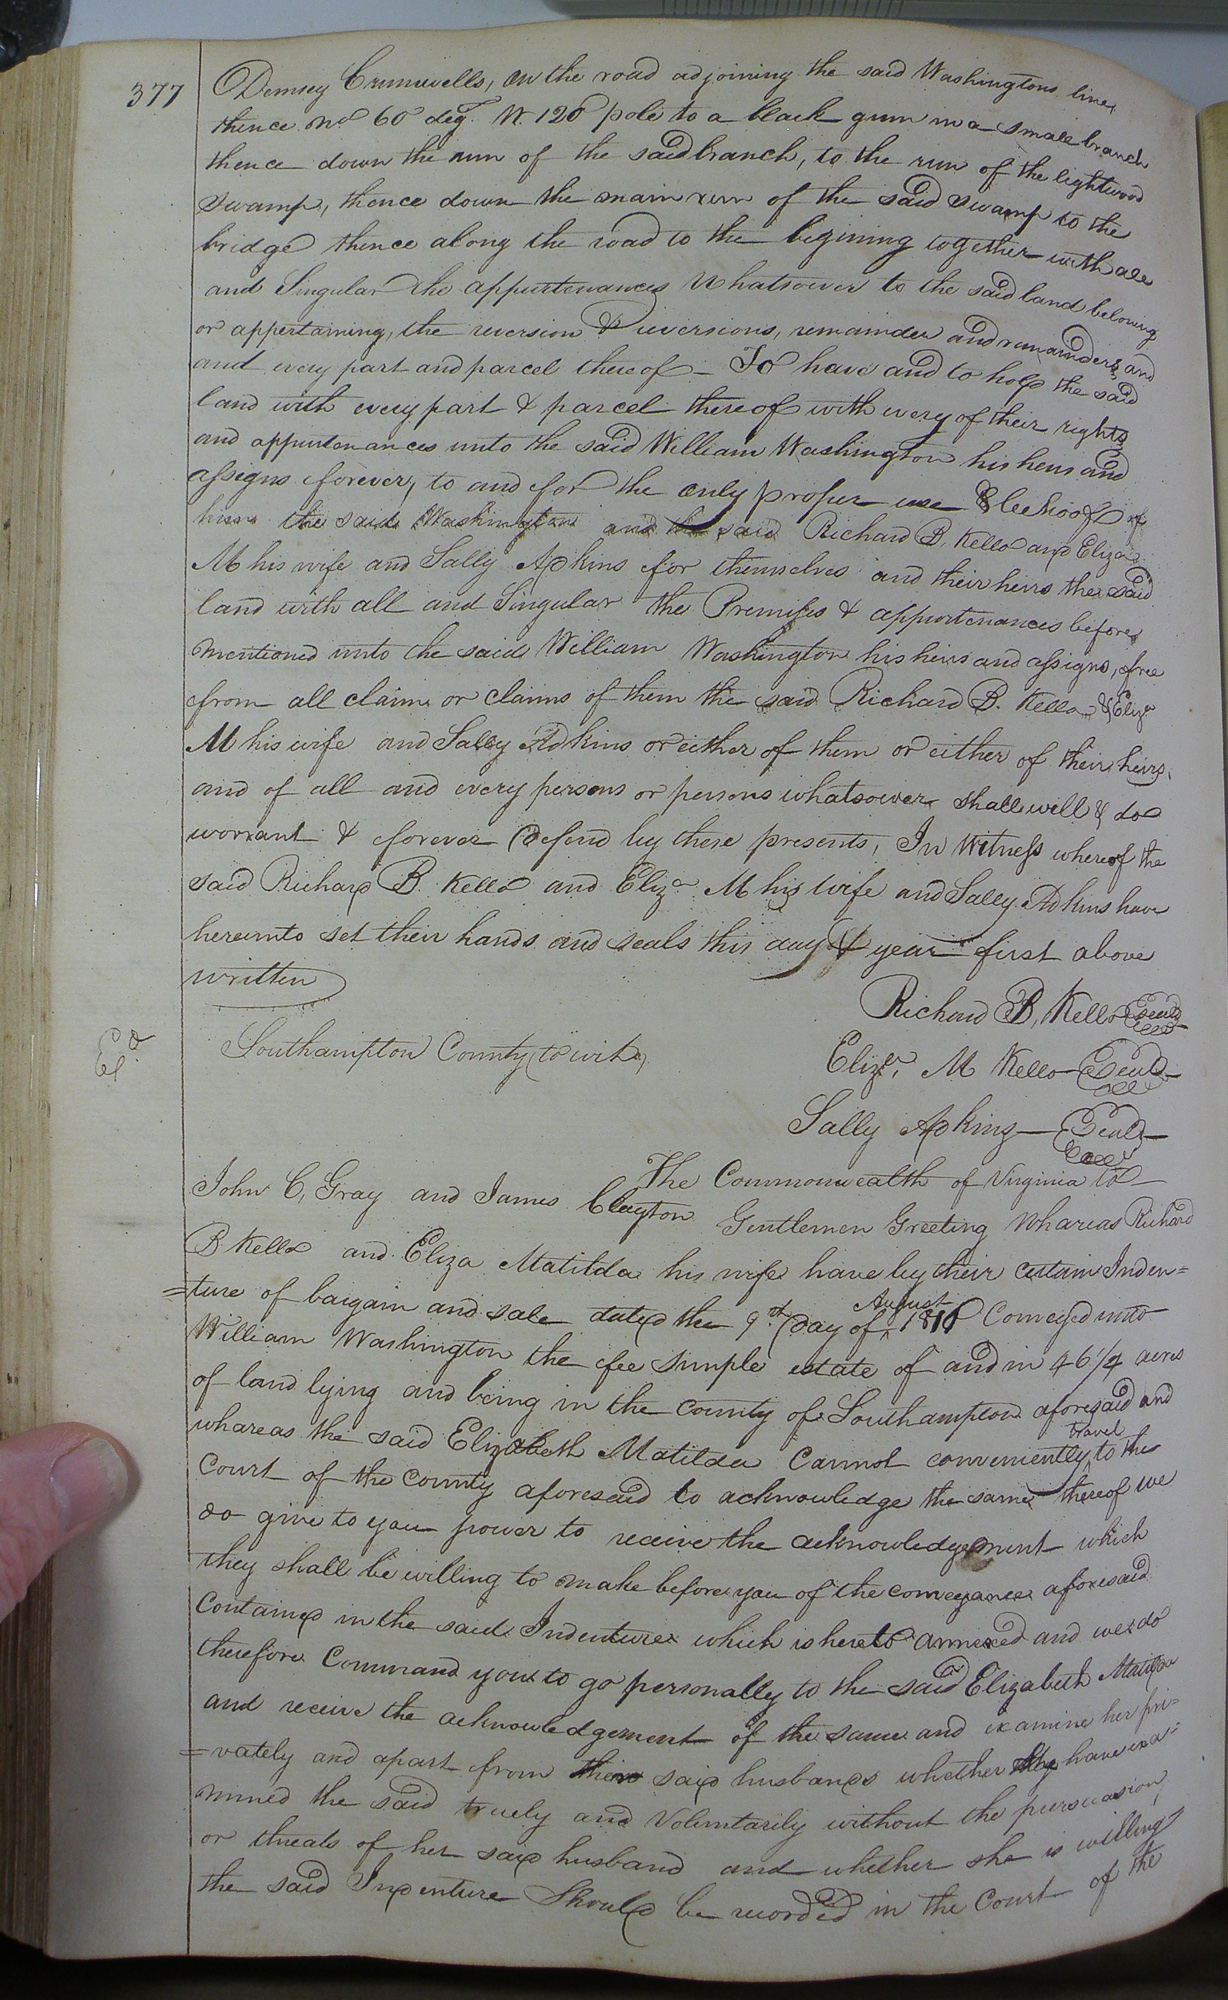 377
Demsey Crumwells, on the road adjoining the said Washingtons line,
thence No 60 deg. W. 120 pole to a black gum in a small branch
thence down the run of the said branch, to the run of the lightwood
swamp, thence down the main run of the said swamp to the
bridge thence along the road to the begining together with all
and Singular the appurtenances whatsoever to the said land belonging
or appertaining, the reversion & reversions, remainder and remainders, and
and every part and parcel thereof - To have and to hold the said
land with every part & parcel thereof with every of their rights
and appurtenances unto the said William Washington his heirs and
assigns forever, to and for the only proper use & behoof of
him the said Washington and the said Richard B. Kello and Eliza
M his wife and Sally Adkins for themselves and their heirs the said
land with all and Singular the Premises & appurtenances before
mentioned unto the said William Washington his heirs and assigns, free
from all claim or claims of them the said Richard B. Kello & Eliza
M his wife and Sally Adkins or either of them or either of their heirs,
and of all and every persons or persons whatsoever shall will & do
warrant & forever defend by these presents, In Witness whereof the
said Richard B. Kello and Eliza M his wife and Sally Adkins have
hereunto set their hands and seals this day & year first above
written
Richard B, Kello Seal
Eliza. M Kello Seal
Sally Adkins Seal
Southampton County to wit,
The Commonwealth of Virginia to
John C, Gray and James Clayton Gentlemen Greeting Whareas Richard
B Kello and Eliza Matilda his wife have by their certain Inden=
=ture of bargain and sale dated the 9th day of August 1816 Conveyed unto
William Washington the fee simple estate of and in 46 1/4 acres
of land lying and being in the County of Southampton aforesaid and
whareas the said Elizabeth Matilda Cannot conveniently travel to the
Court of the County aforesaid to acknowledge the same thereof we
do give to you power to receive the acknowledgement which
they shall be willing to make before you of the conveyance aforesaid
Contained in the said Indenture which is hereto annexed and we do
therefore Command you to go personally to the said Elizabeth Matilda
and receive the acknowledgement of the same and examine her pri=
=vately and apart from said husbands whether they have exa=
mined the said truely and Voluntarily without the pursuasion,
or threats of her said husband and whether she is willing
the said Indenture Should be recorded in the Court of the